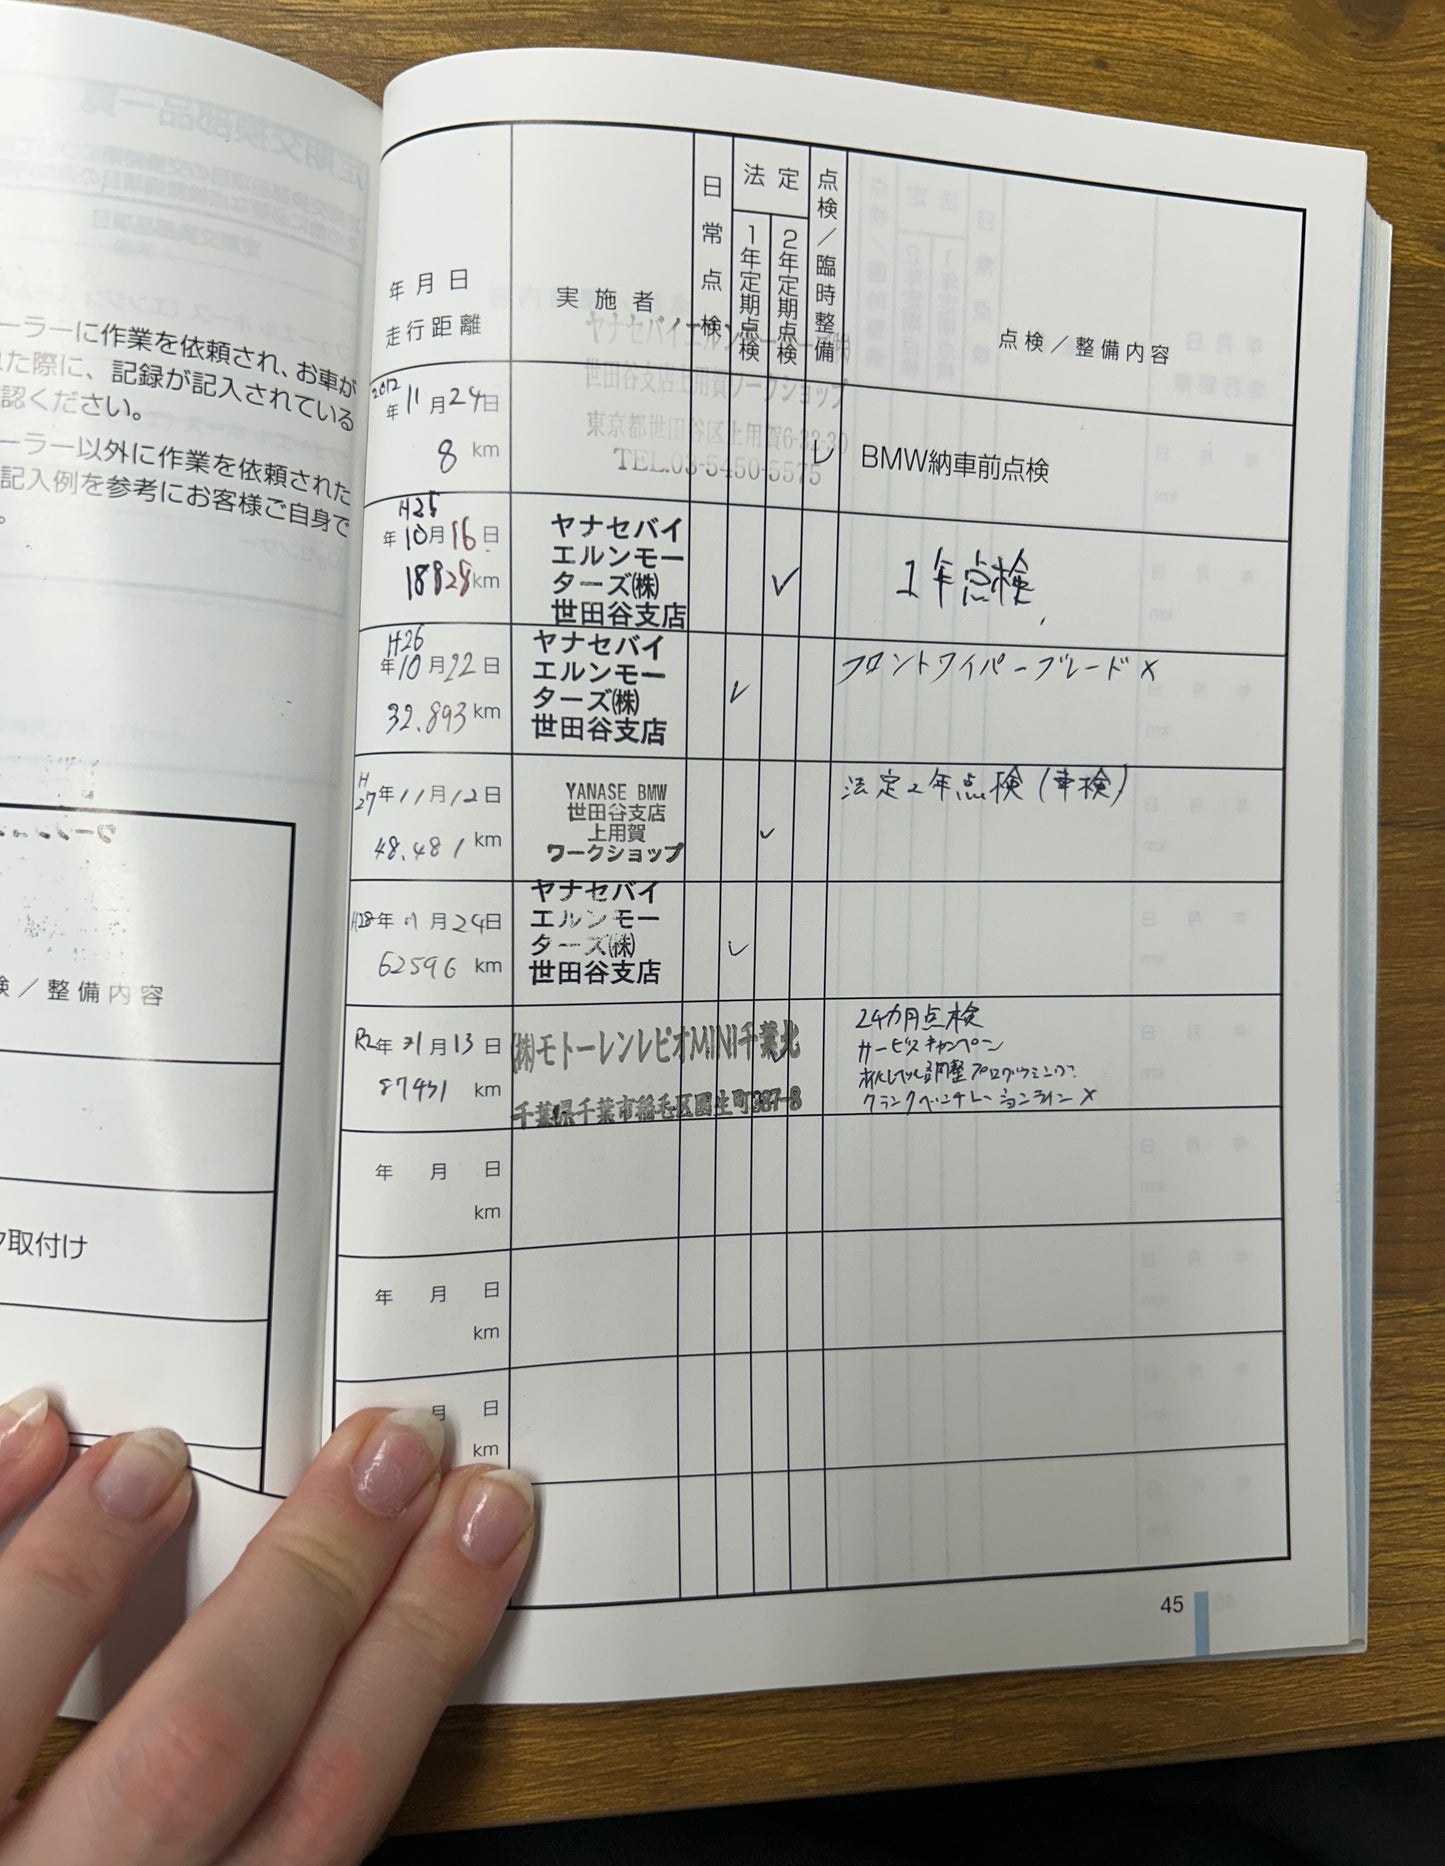 ーラーに作業を依頼され、お車が
た際に、記録が記入されている
認ください。
ーラー以外に作業を依頼された
記入例を参考にお客様ご自身で
。
検／整備内容
取付け
年月日
走行距離
実施者
日常点検
法定
1年定期点検
2年定期点検
点検／臨時整備
点検／整備内容
ヤナセバイエルンモーターズ㈱
世田谷支店上用賀ワークショップ
東京都世田谷区上用賀6-32-30
TEL.03-5450-5575
2012年11月24日
8 km
レ
BMW納車前点検
H25年10月16日
18828km
ヤナセバイ
エルンモー
ターズ㈱
世田谷支店
✓
1年点検
H26年10月22日
32.893 km
ヤナセバイ
エルンモー
ターズ㈱
世田谷支店
✓
フロントワイパーブレード×
H27年11月12日
48.481 km
YANASE BMW
世田谷支店
上用賀
ワークショップ
✓
法定2年点検(車検)
H28年11月24日
62596 km
ヤナセバイ
エルンモー
ターズ㈱
世田谷支店
✓
R2年 月13日
87431 km
㈱モトーレンレピオMINI千葉北
千葉県千葉市稲毛区園生町387-8
24カ月点検
サービスキャンペーン
調整プログラミング
クランクベンチレーションライン×
年 月 日
km
年 月 日
km
月 日
km
45